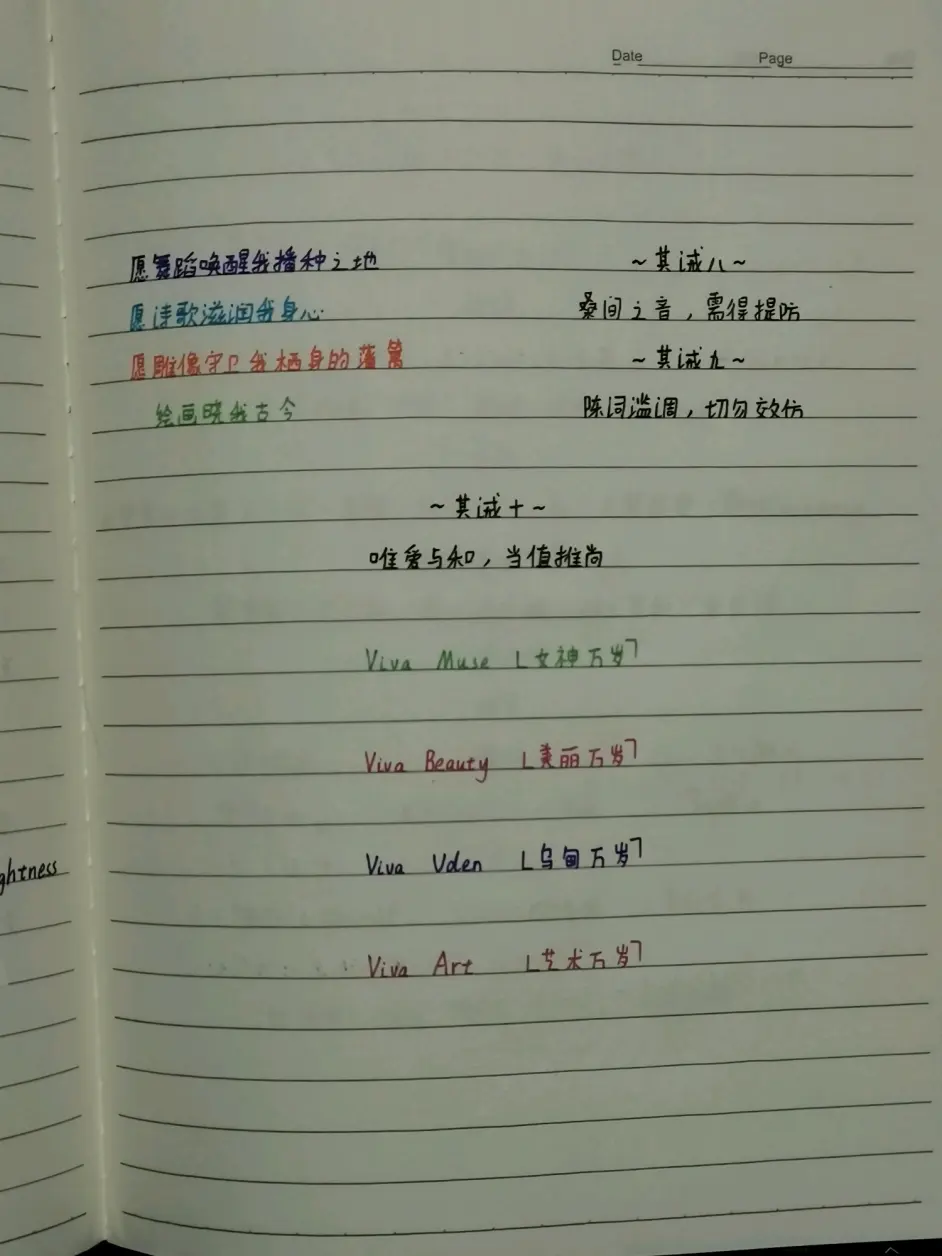 Date Page
愿舞蹈唤醒我播种之地
愿诗歌滋润我身心
愿雕像守卫我栖身的藩篱
绘画晓我古今
~其诫八~
桑间之音，需得提防
~其诫九~
陈词滥调，切勿效仿
~其诫十~
唯爱与和，当值推尚
Viva Muse 「女神万岁」
Viva Beauty 「美丽万岁」
Viva Vden 「乌甸万岁」
Viva Art 「艺术万岁」
ghtness